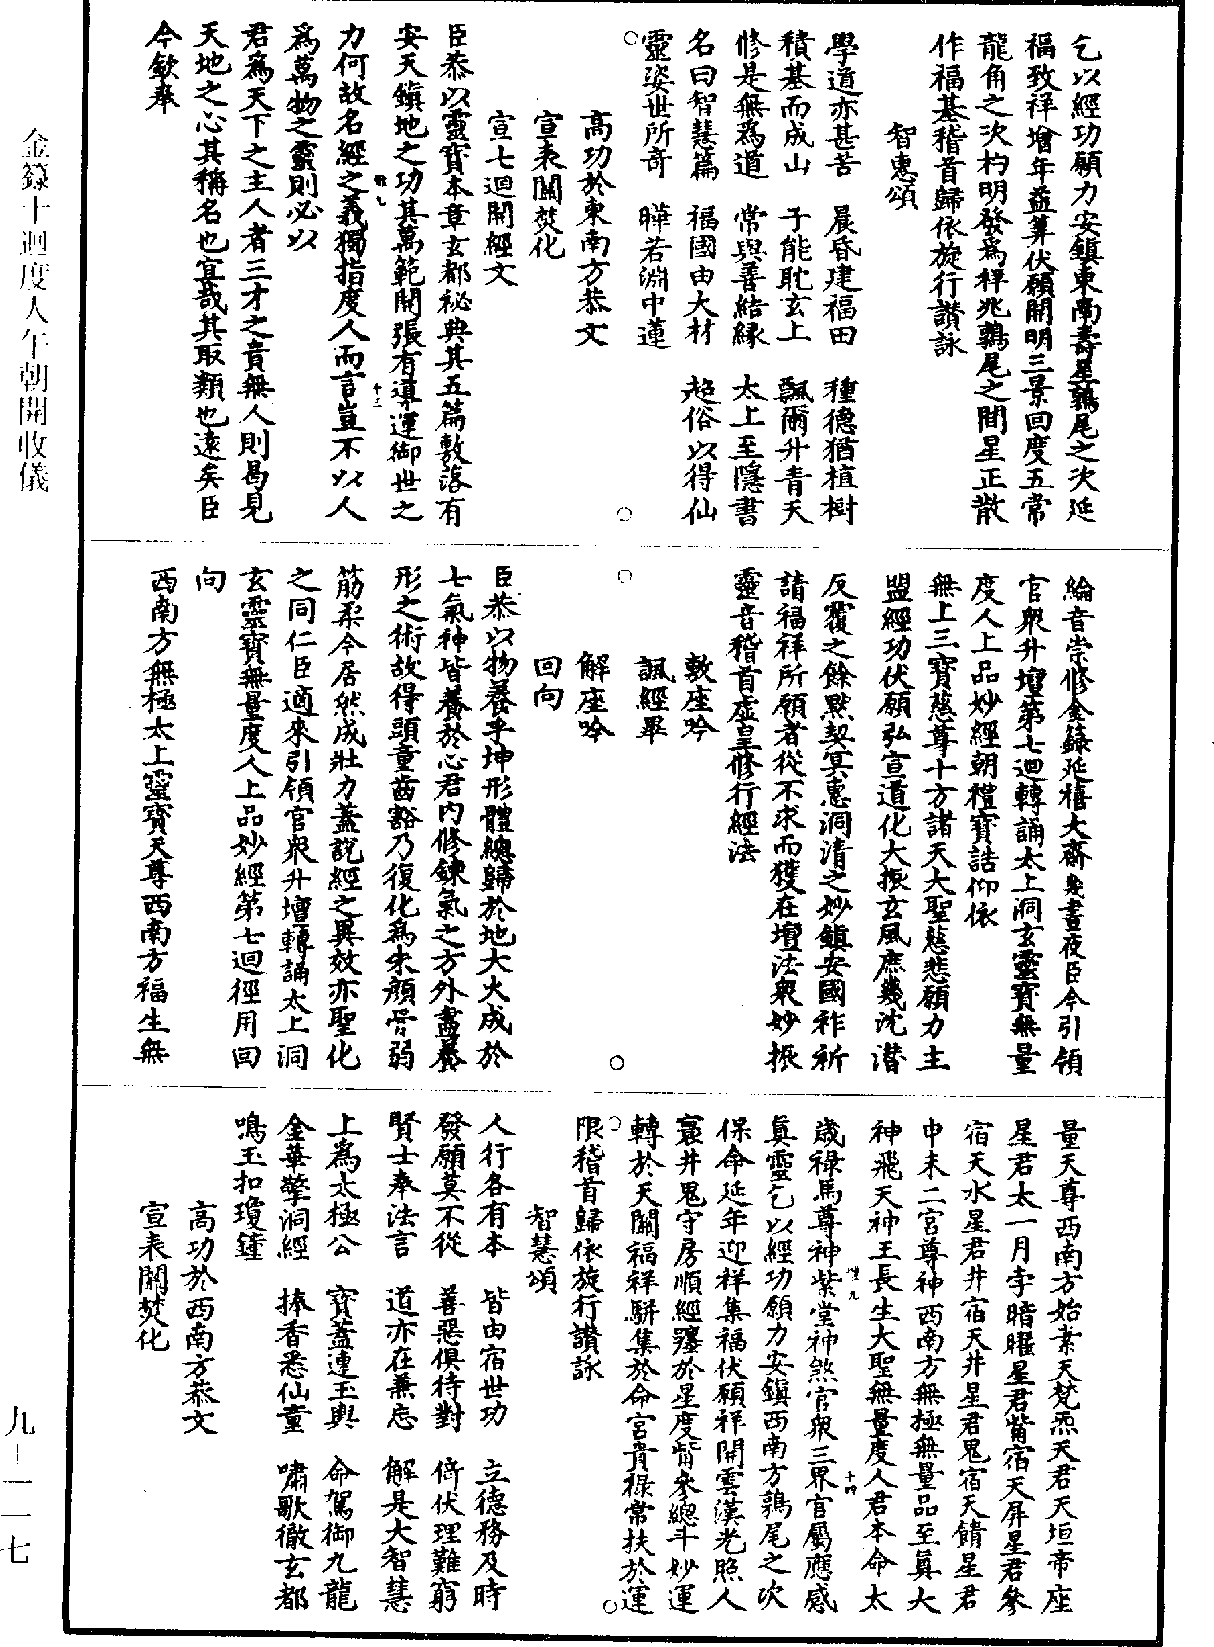 乞以經功願力安鎮東南壽星鶉尾之次延
福致祥增年益筭伏願開明三景回度五常
龍角之次杓明發爲祥兆鶉尾之間星正散
作福基稽首歸依旋行讚詠
智惠頌
學道亦甚苦　晨昏建福田　種德猶植樹
積基而成山　子能耽玄上　飄爾升青天
修是無爲道　常與善結緣　太上至隱書
名曰智慧篇　福國由大材　超俗以得仙
靈姿世所奇　曄若淵中蓮
高功於東南方恭文
宣表關焚化
宣七迴開經文
臣恭以靈寶本章玄都祕典其五篇敷落有
安天鎮地之功其萬範開張有導運御世之
力何故名經之義獨指度人而言豈不以人
爲萬物之靈則必以
君爲天下之主人者三才之貴無人則曷見
天地之心其稱名也宜哉其取類也遠矣臣
今欽奉
綸音崇修金籙延禧大齋幾晝夜臣今引領
官衆升壇第七迴轉誦太上洞玄靈寶無量
度人上品妙經朝禮寶誥仰依
無上三寶慈尊十方諸天大聖慈悲願力主
盟經功伏願弘宣道化大振玄風庶幾沈潛
反覆之餘默契冥惠洞清之妙鎮安國祚祈
請福祥所願者從不求而獲在壇法衆妙振
靈音稽首虛皇修行經法
敷座吟
諷經畢
解座吟
回向
臣恭以物養乎坤形體總歸於地大火成於
七氣神皆養於心君内修鍊氣之方外盡養
形之術故得頭童齒豁乃復化爲朱顔骨弱
筋柔今居然成壯力蓋説經之異效亦聖化
之同仁臣適來引領官衆升壇轉誦太上洞
玄靈寶無量度人上品妙經第七迴徑用回
向
西南方無極太上靈寶天尊西南方福生無
量天尊西南方始素天梵炁天君天垣帝座
星君太一月孛暗曜星君觜宿天屏星君參
宿天水星君井宿天井星君鬼宿天餙星君
申未二宫尊神西南方無極無量品至真大
神飛天神王長生大聖無量度人君本命太
歲禄馬尊神紫堂神煞官衆三界官屬應感
真靈乞以經功願力安鎮西南方鶉尾之次
保命延年迎祥集福伏願祥開雲漢老照人
寰井鬼守房順經躔於星度觜參總斗妙運
轉於天關福祥駢集於命宫貴禄常扶於運
限稽首歸依旋行讚詠
智慧頌
人行各有本　皆由宿世功　立德務及時
發願莫不從　善惡俱待對　倚伏理難窮
賢士奉法言　道亦在兼忘　解是大智慧
上爲太極公　寶蓋連玉輿　命駕御九龍
金華擎洞經　捧香悉仙童　嘯歌徹玄都
鳴玉扣瓊鐘
高功於西南方恭文
宣表關焚化
金籙十迴度人午朝開收儀
九－一一七